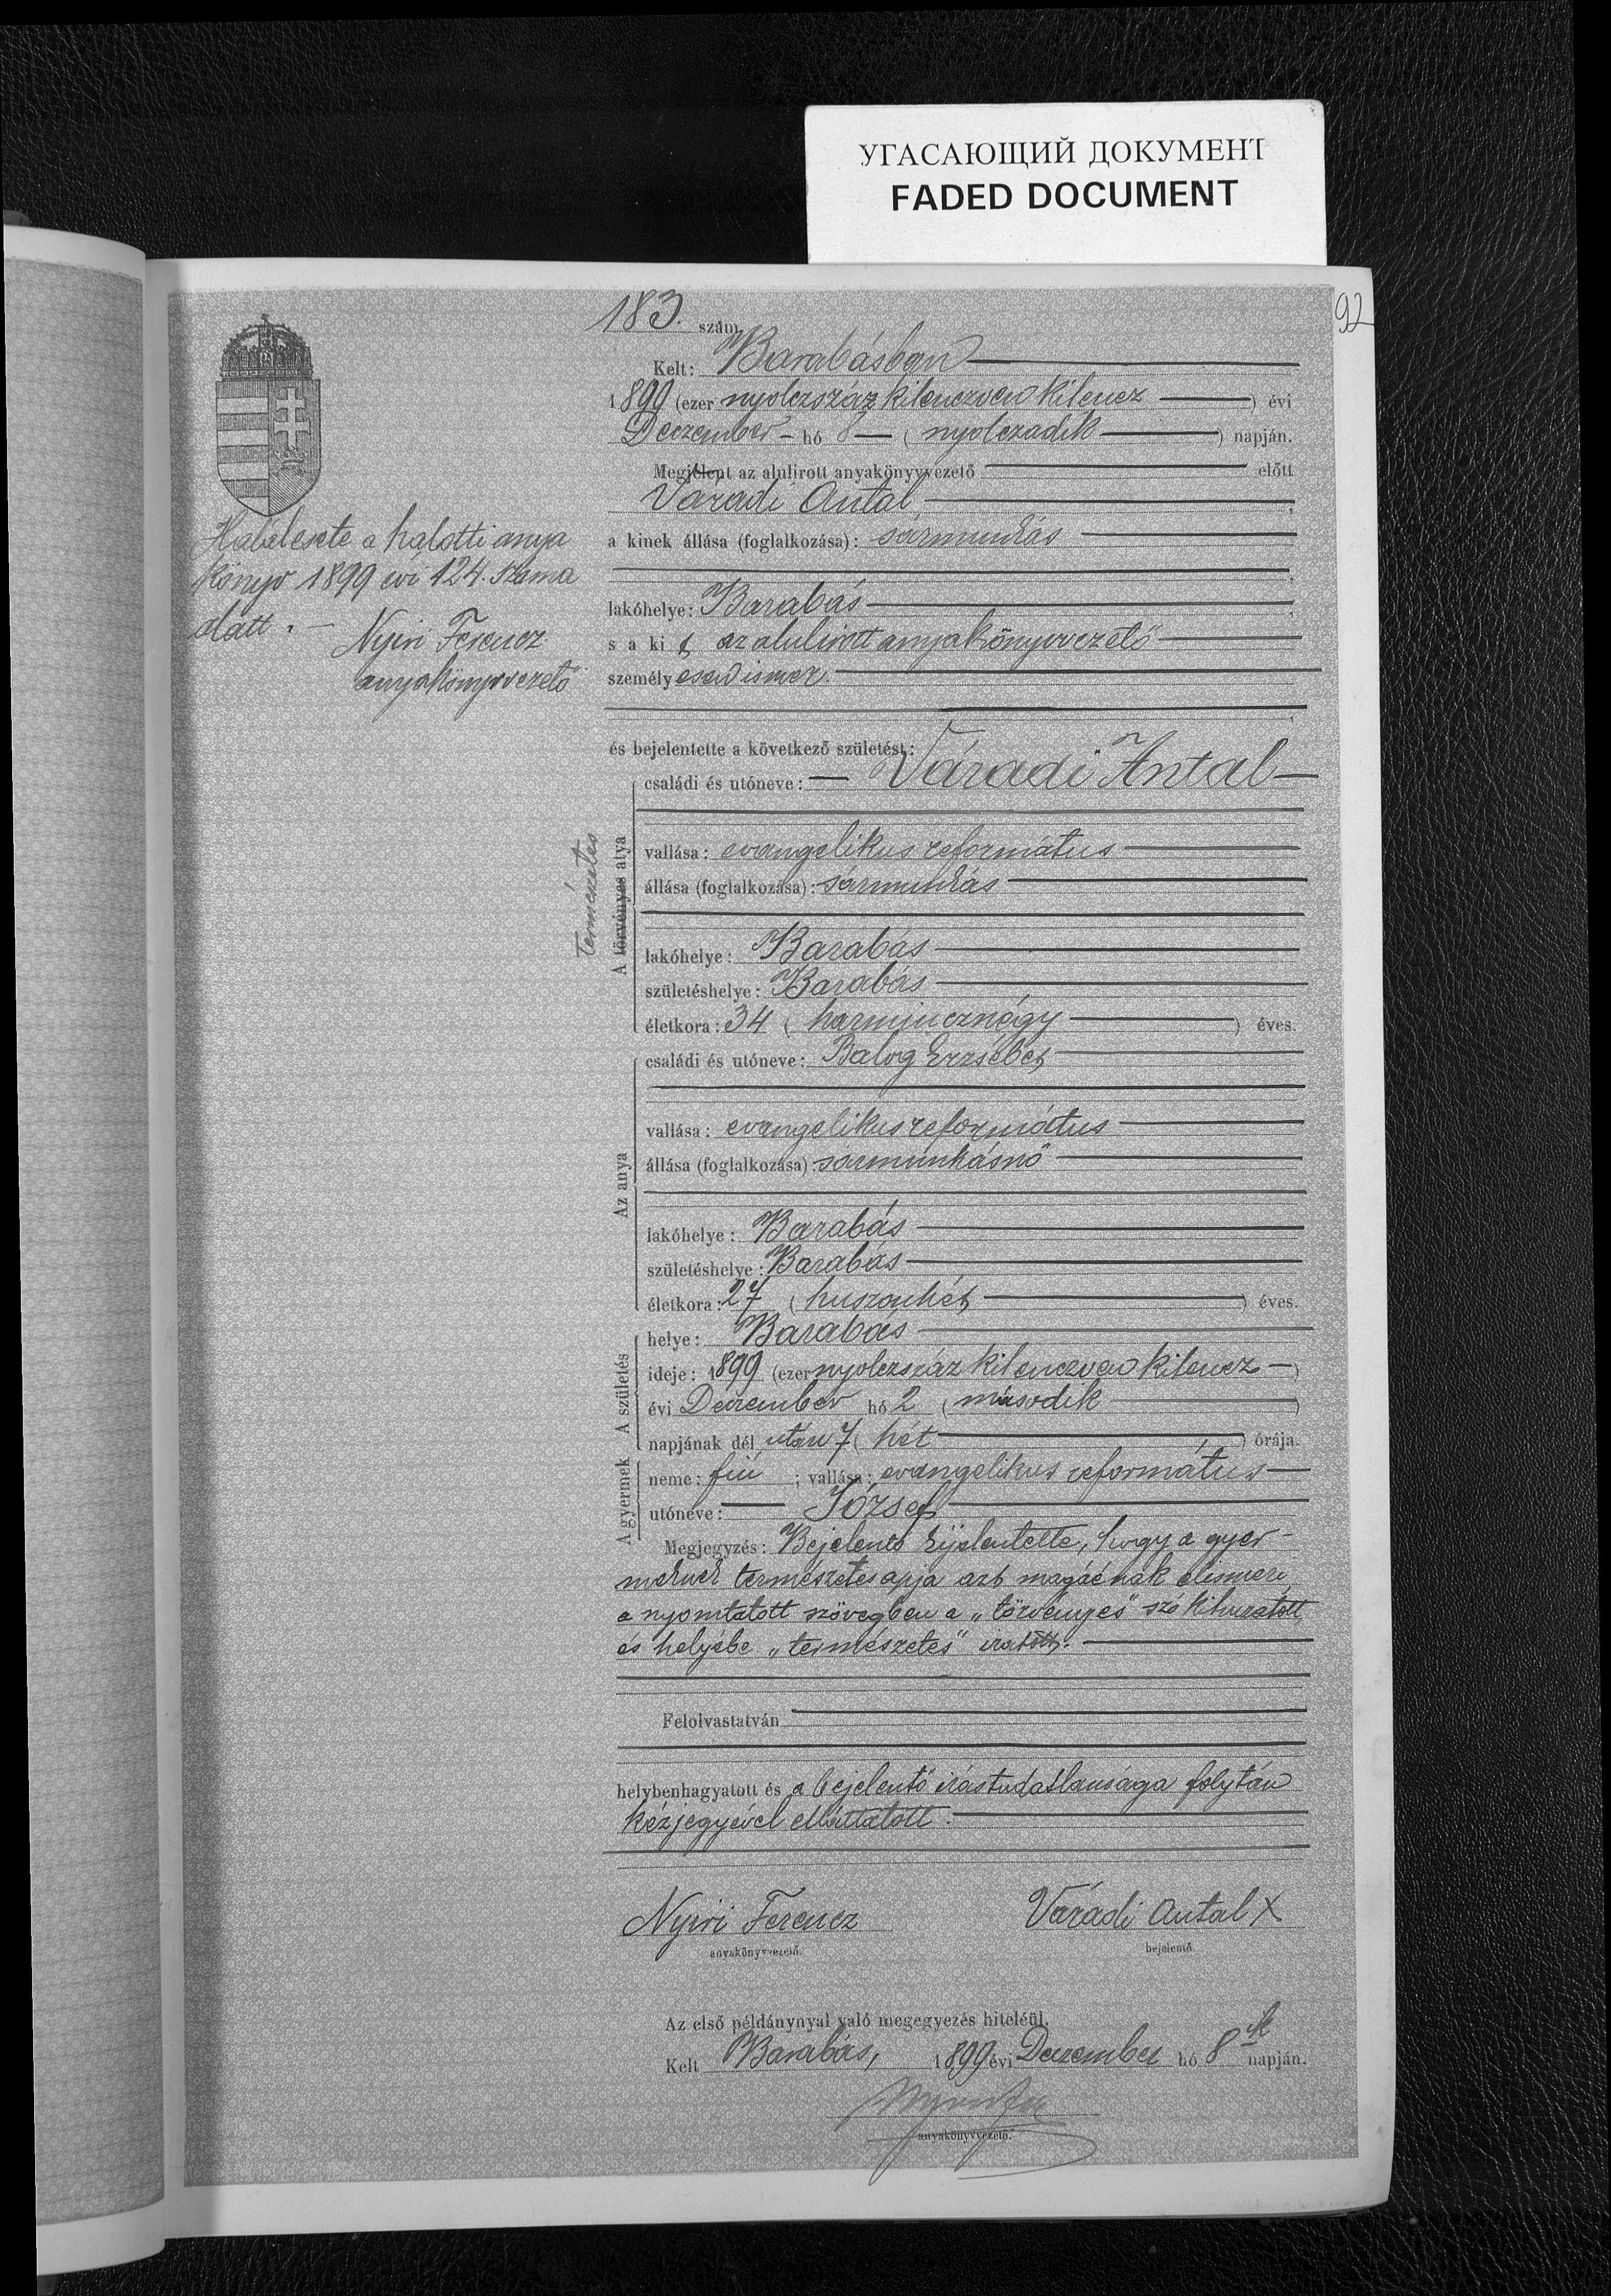 УГАСАЮЩИЙ ДОКУМЕНТ
FADED DOCUMENT
92
183. szám.
Kelt: Barabásban
1899 (ezer nyolczszáz kilenczven kilencz) évi
Deczember hó 8 (nyolczadik) napján.
Megjelent az alulirott anyakönyvvezető előtt
Váradi Antal,
a kinek állása (foglalkozása): sármunkás
lakóhelye: Barabás
s a kit az alulirott anyakönyvvezető
személyesen ismer.
Halálesete a halotti anya
könyv 1899 évi 124. száma
alatt. –
Nyiri Ferencz
anyakönyvvezető
és bejelentette a következő születést:
A törvényes atya
természetes
családi és utóneve: Váradi Antal
vallása: evangelikus református
állása (foglalkozása): sármunkás
lakóhelye: Barabás
születéshelye: Barabás
életkora: 34 (harmincznégy) éves.
Az anya
családi és utóneve: Balog Erzsébet
vallása: evangelikus református
állása (foglalkozása): sármunkásnő
lakóhelye: Barabás
születéshelye: Barabás
életkora: 27 (huszonhét) éves.
A születés
helye: Barabás
ideje: 1899 (ezer nyolczszáz kilenczven kilencz)
évi Deczember hó 2 (második)
napjának dél után 7 (hét) órája.
A gyermek
neme: fiú; vallása: evangelikus református
utóneve: József
Megjegyzés: Bejelentő kijelentette, hogy a gyer-
meknek természetes apja azt magáénak elismeri
a nyomtatott szövegben a „törvényes" szó kihuzatott
és helyébe „természetes" iratott.
Felolvastatván
helybenhagyatott és a bejelentő irástudatlansága folytán
kézjegyével elláttatott.
Nyiri Ferencz
anyakönyvvezető.
Váradi Antal X
bejelentő.
Az első példánynyal való megegyezés hiteléül.
Kelt Barabás, 1899 évi Deczember hó 8ik napján.
anyakönyvvezető.